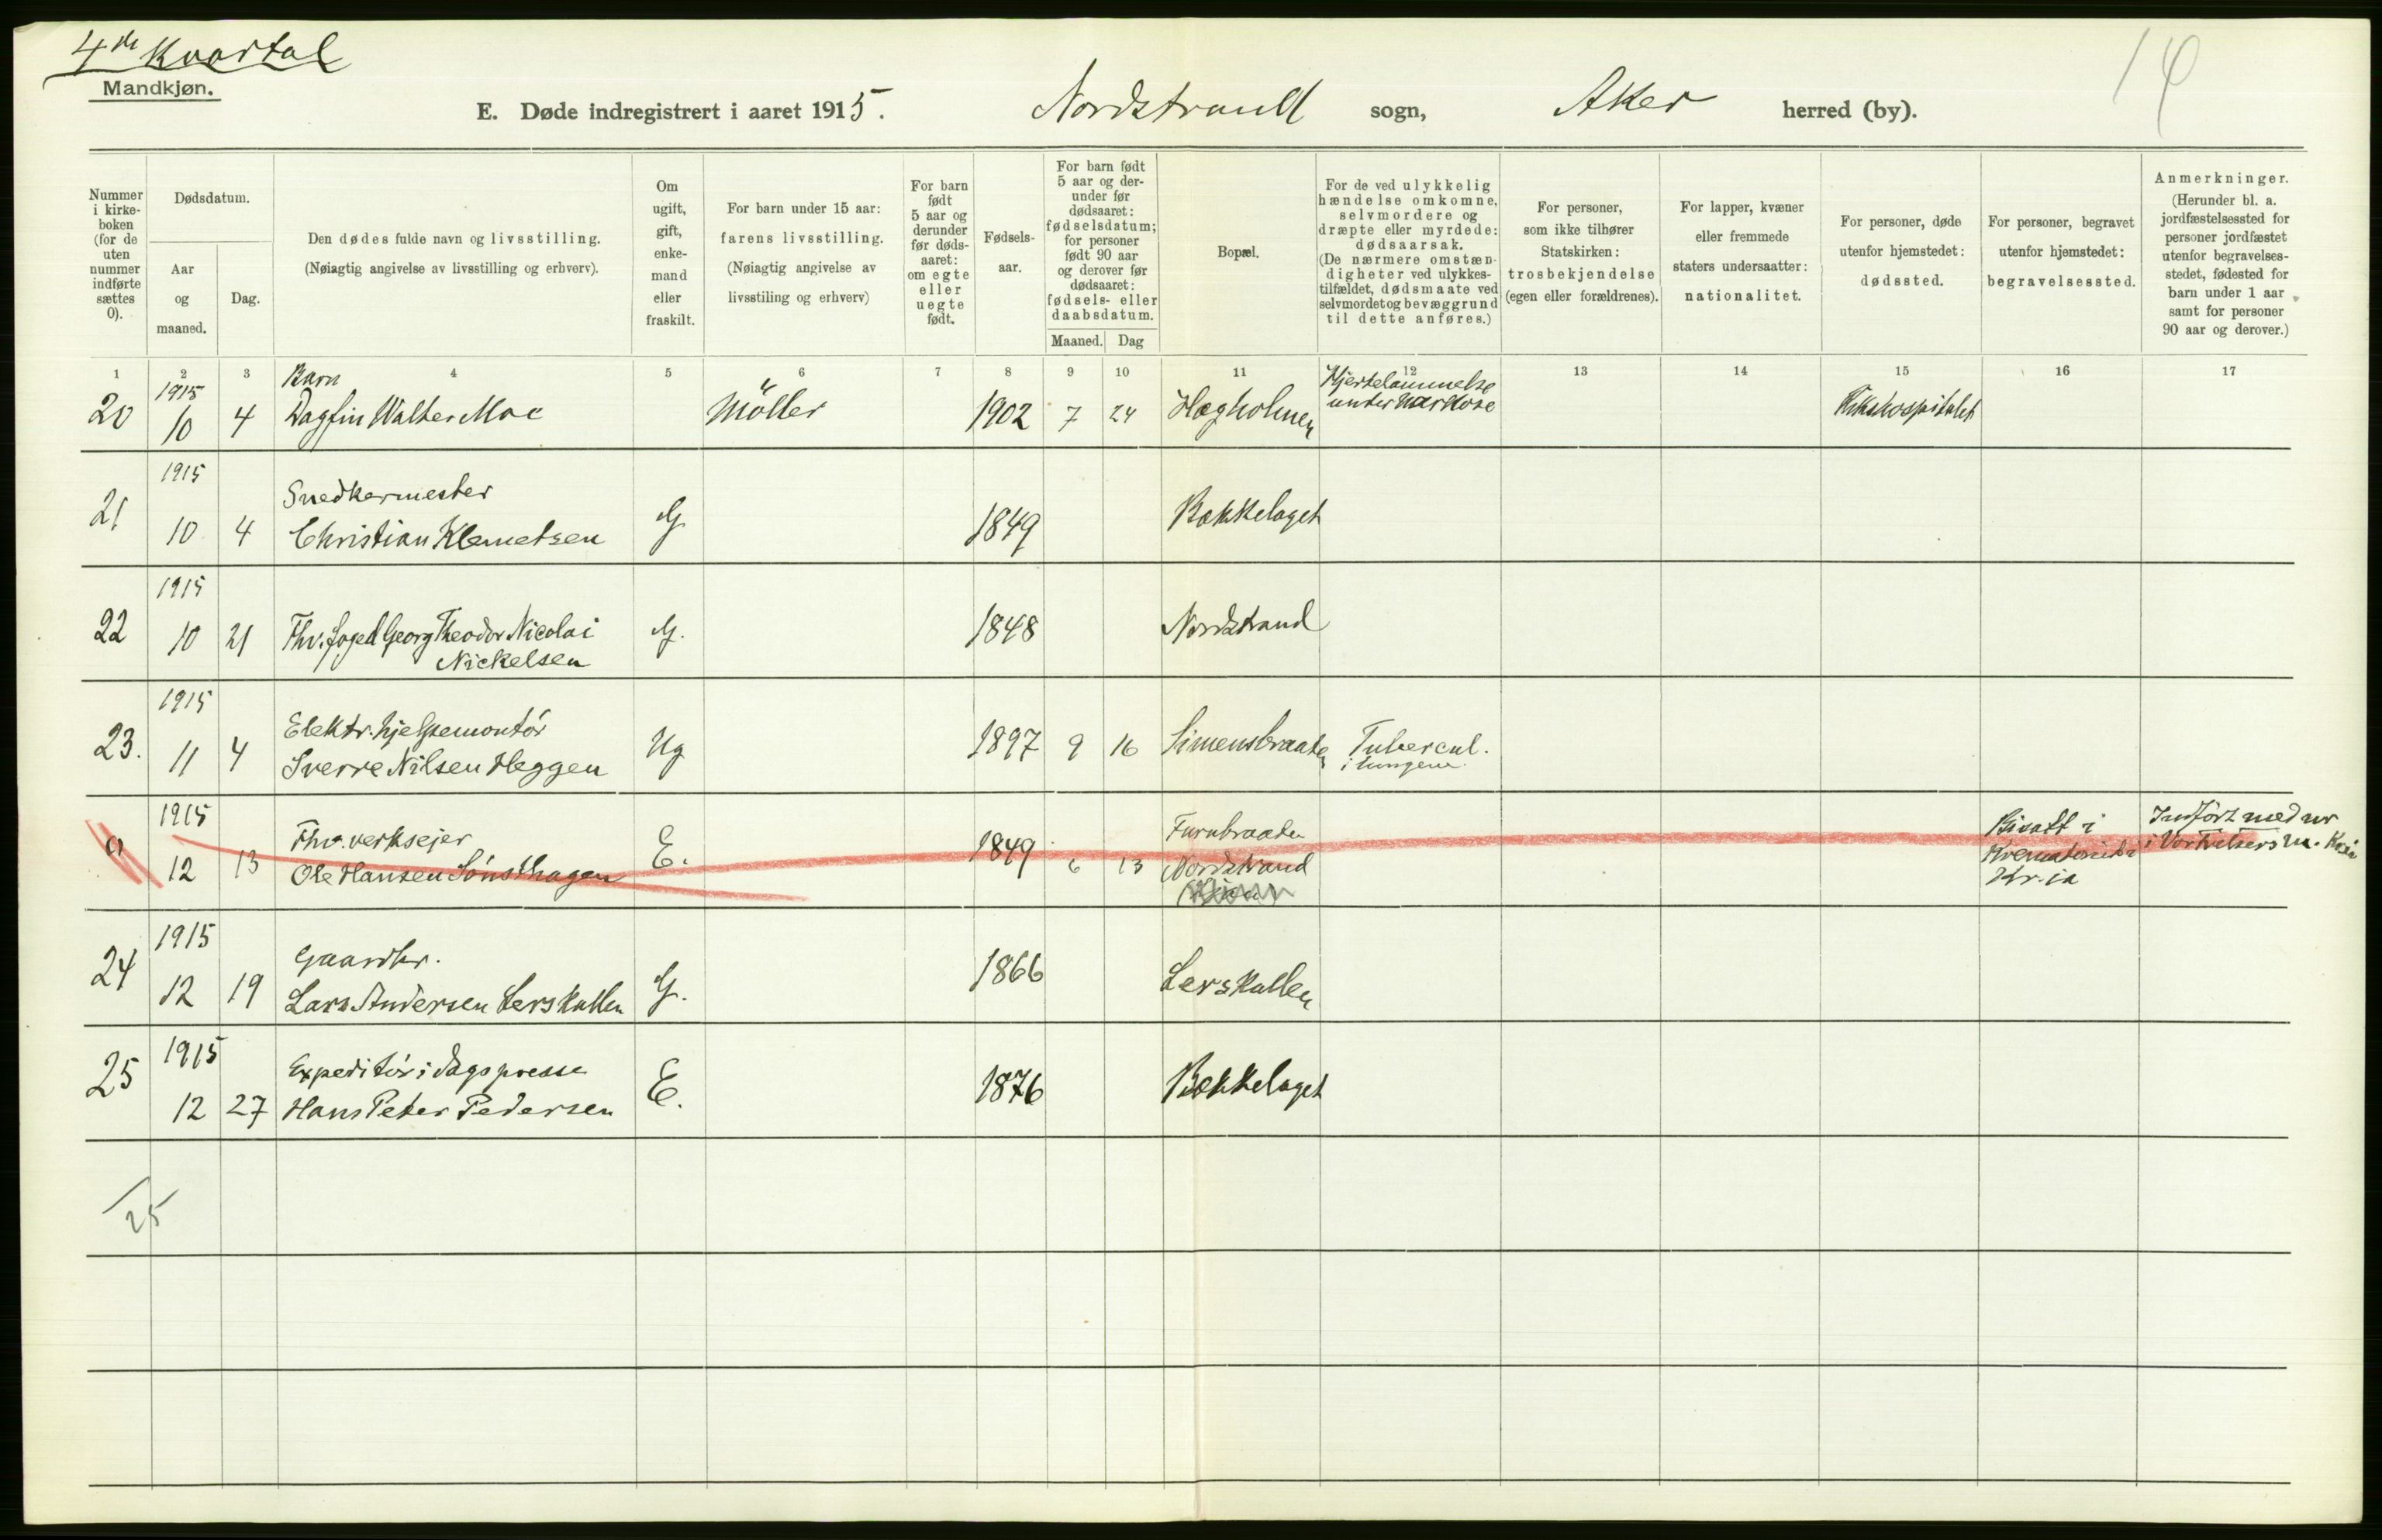 4de Kvartal
Mandkjøn.
E. Døde indregistrert i aaret 1915. Nordstrand sogn, Aker herred (by).
Nummer i kirke-boken (for de uten nummer indførte sættes 0).
Dødsdatum.
Aar og maaned.
Dag.
Den dødes fulde navn og livsstilling.
(Nøiagtig angivelse av livsstilling og erhverv).
Om ugift, gift, enke-mand eller fraskilt.
For barn under 15 aar:
farens livsstilling.
(Nøiagtig angivelse av
livsstiling og erhverv)
For barn født 5 aar og derunder før døds-aaret: om egte eller uegte født.
Fødsels-aar.
For barn født 5 aar og der-under før dødsaaret: fødselsdatum; for personer født 90 aar og derover før dødsaaret: fødsels- eller daabsdatum.
Maaned. Dag
Bopæl.
For de ved ulykkelig
hændelse omkomne,
selvmordere og
dræpte eller myrdede:
dødsaarsak.
(De nærmere omstæn-
digheter ved ulykkes-
tilfældet, dødsmaate ved
selvmordet og bevæggrund
til dette anføres.)
For personer,
som ikke tilhører
Statskirken:
trosbekjendelse
(egen eller forældrenes).
For lapper, kvæner
eller fremmede
staters undersaatter:
nationalitet.
For personer, døde
utenfor hjemstedet:
dødssted.
For personer, begravet
utenfor hjemstedet:
begravelsessted.
Anmerkninger.
(Herunder bl. a.
jordfæstelsessted for
personer jordfæstet
utenfor begravelses-
stedet, fødested for
barn under 1 aar
samt for personer
90 aar og derover.)
1 2 3 4 5 6 7 8 9 10 11 12 13 14 15 16 17
1915 Barn Hjertelammelse
20 10 4 Dagfin Walter Moe Möller 1902 7 24 Hegholmen under narkose Rikshospitalet
1915
Snedkermester
21 10 4 Christian Klemetsen G 1849 Bækkelaget
1915
22 10 21 Fhv. foged Georg Theodor Nicolai G. 1848 Nordstrand
Nickelsen
1915
Elektr. hjelpemontör
23. 11 4 Sverre Nilsen Heggen Ug 1897 9 16 Simensbraaten Tubercul.
i lungene.
1915
Fhv. verksejer Furubraaten Bisatt i Indført med nr
0 12 13 Ole Hansen Sønsthagen E. 1849 6 13 Nordstrand Krematoriet i Vor Frelsers m. Kria
Kr.ia
1915
Gaardbr.
24 12 19 Lars Andersen Lerskallen G. 1866 Lerskallen
1915
Expeditör i dagspresse
25 12 27 Hans Peter Pedersen E. 1876 Bækkelaget
25